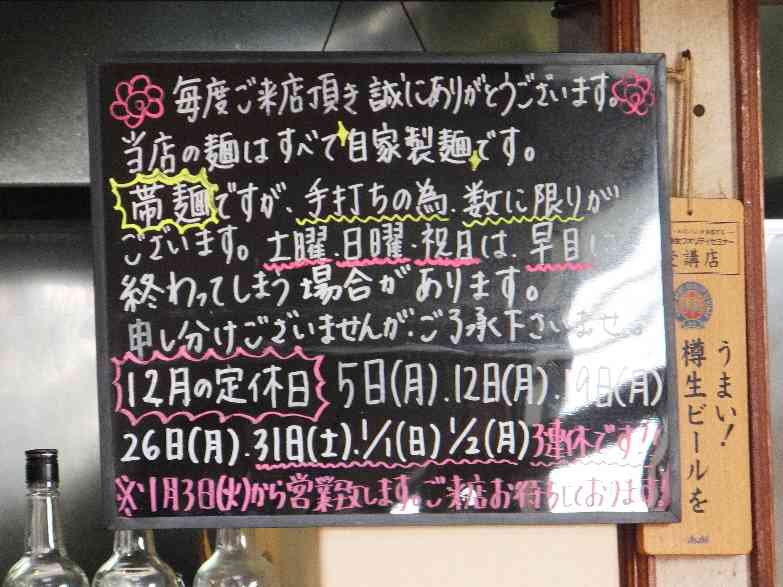 毎度ご来店頂き誠にありがとうございます。
当店の麺はすべて自家製麺です。
帯麺ですが、手打ちの為、数に限りが
ございます。土曜、日曜・祝日は、早目に
終わってしまう場合があります。
申し分けございませんが、ご了承下さいませ。
12月の定休日 5日(月).12日(月).19日(月)
26日(月).31日(土).1/1(日)1/2(月)3連休です!!
※1月3日(火)から営業致します。ご来店お待ちしております!
講店
うまい!
樽生ビールを
Asahi